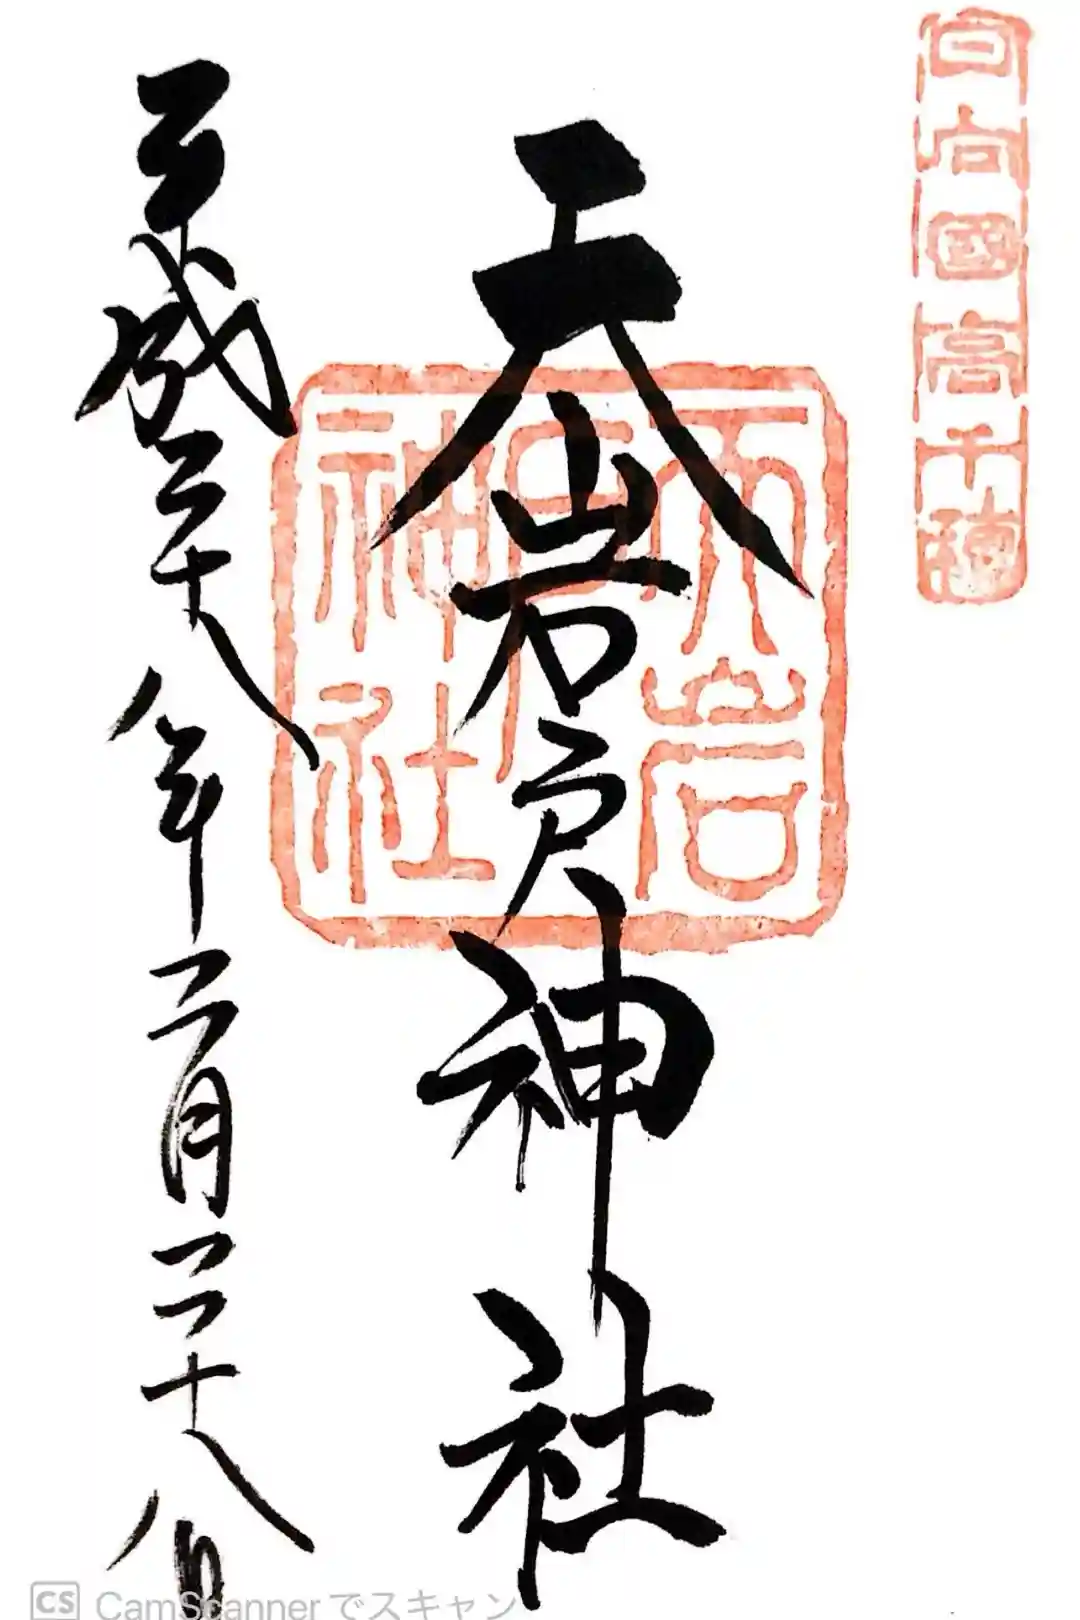 日向國高千穗
天岩戸神社
天岩戸神社
平成二十八年二月二十八日
CS CamScannerでスキャン